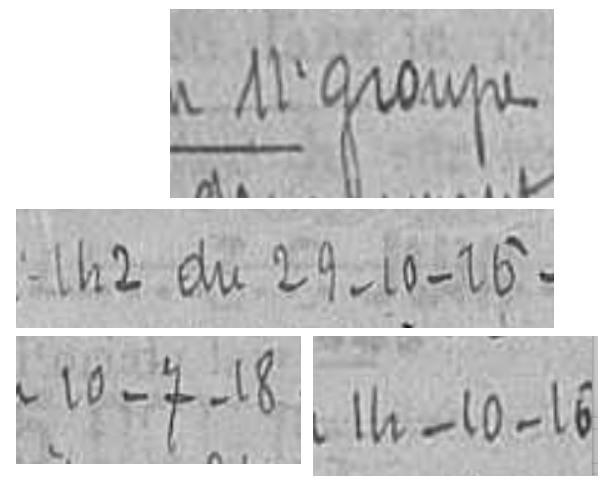 11e groupe
142 du 29-10-15-
10-7-18
14-10-15